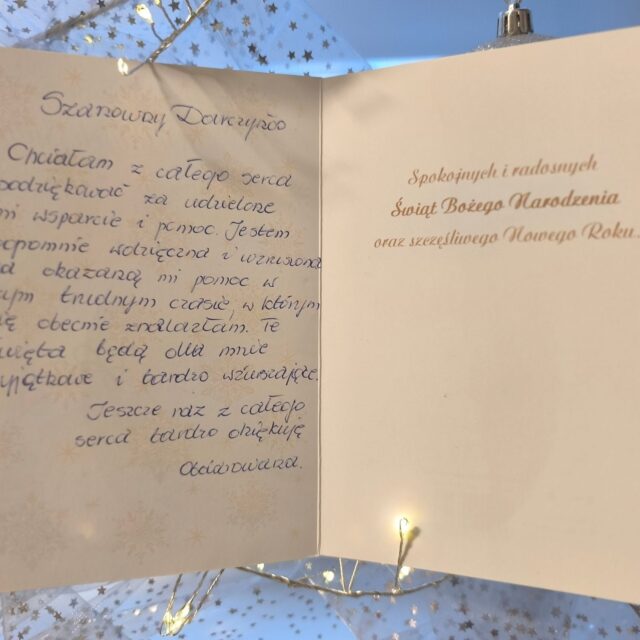 Szanowny Darczyńco
Chciałam z całego serca
podziękować za udzielone
mi wsparcie i pomoc. Jestem
ogromnie wdzięczna i wzruszona
za okazaną mi pomoc w
tym trudnym czasie, w którym
się obecnie znalazłam. Te
święta będą dla mnie
wyjątkowe i bardzo wzruszające.
Jeszcze raz z całego
serca bardzo dziękuję
Obdarowana.
Spokojnych i radosnych
Świąt Bożego Narodzenia
oraz szczęśliwego Nowego Roku.